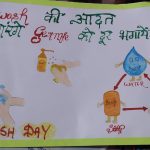 wash की आदत
Germs को दूर भगायें
WATER
SOAP
SH DAY